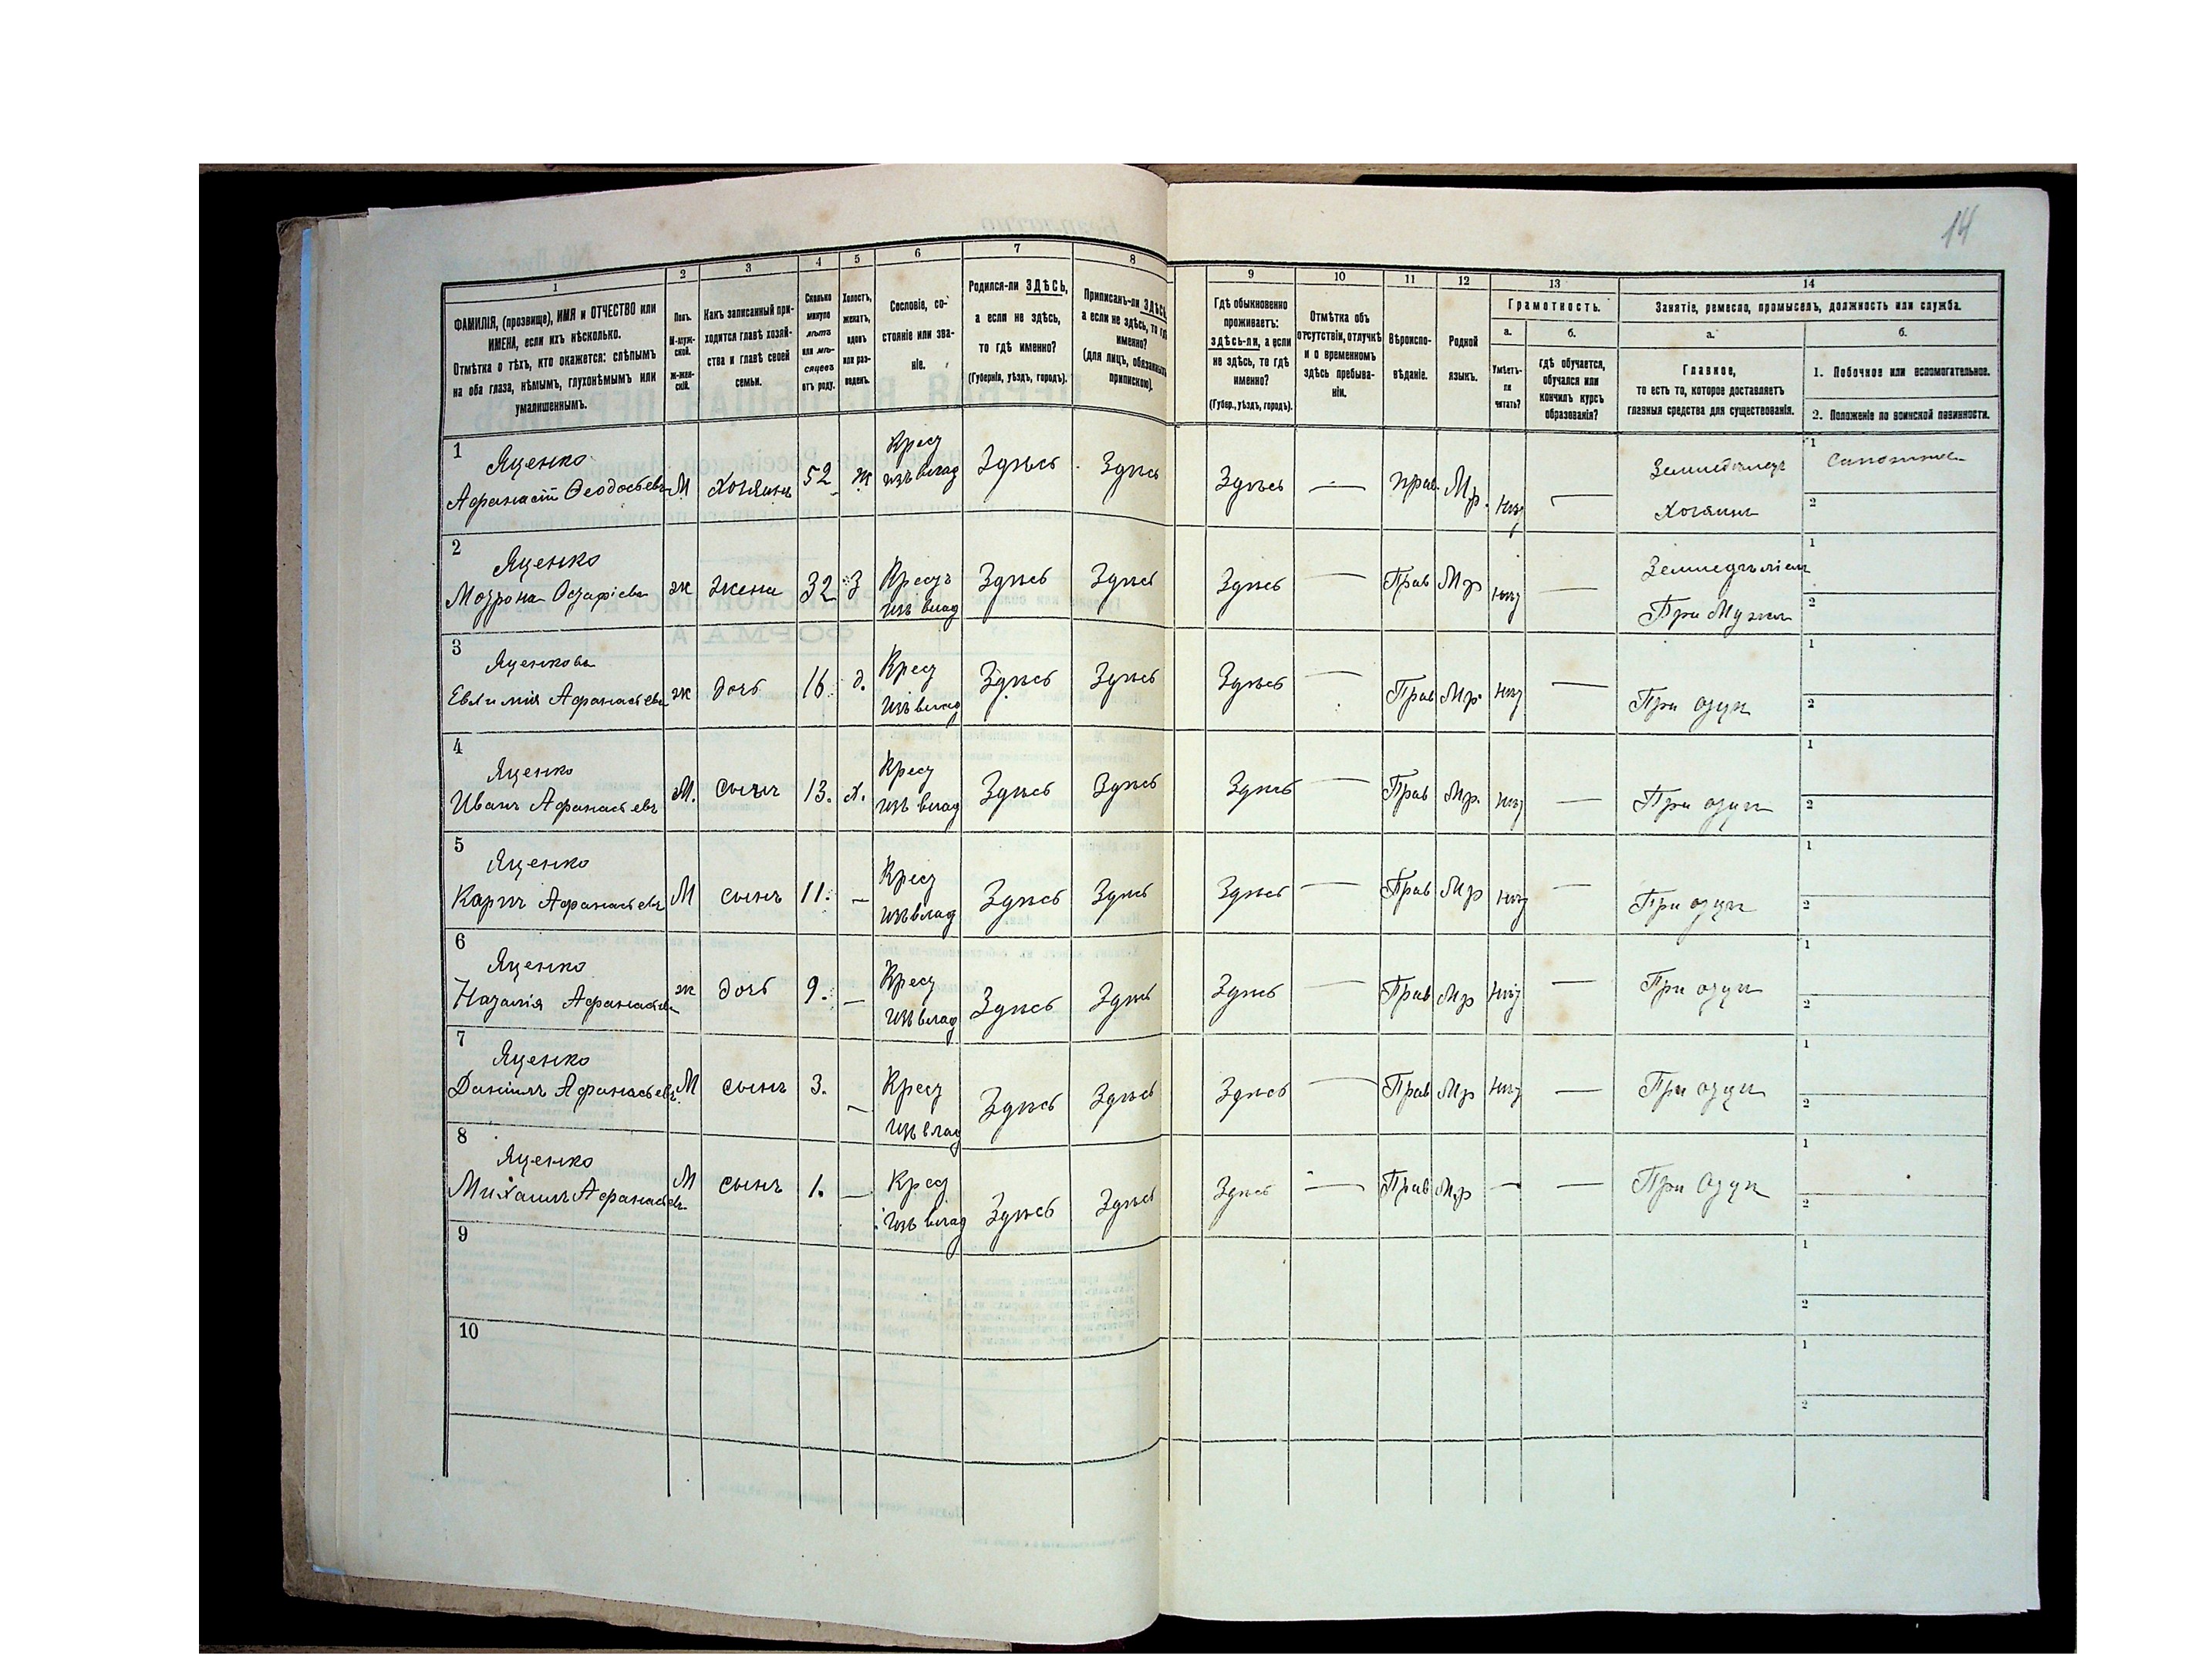 14
1
ФАМИЛІЯ, (прозвище), ИМЯ и ОТЧЕСТВО или
ИМЕНА, если ихъ нѣсколько.
Отмѣтка о тѣхъ, кто окажется: слѣпымъ
на оба глаза, нѣмымъ, глухонѣмымъ или
умалишеннымъ.
2
Полъ.
М-муж-
ской.
ж-жен-
скій.
3
Какъ записанный при-
ходится главѣ хозяй-
ства и главѣ своей
семьи.
4
Сколько
минуло
лѣтъ
или мѣ-
сяцевъ
отъ роду.
5
Холостъ,
женатъ,
вдовъ
или раз-
веденъ.
6
Сословіе, со-
стояніе или зва-
ніе.
7
Родился-ли ЗДѢСЬ,
а если не здѣсь,
то гдѣ именно?
(Губернія, уѣздъ, городъ).
8
Приписанъ-ли ЗДѢСЬ,
а если не здѣсь, то гдѣ
именно?
(для лицъ, обязанныхъ
припискою).
9
Гдѣ обыкновенно
проживаетъ:
здѣсь-ли, а если
не здѣсь, то гдѣ
именно?
(Губер., уѣздъ, городъ).
10
Отмѣтка объ
отсутствіи, отлучкѣ
и о временномъ
здѣсь пребыва-
ніи.
11
Вѣроиспо-
вѣданіе.
12
Родной
языкъ.
13
Грамотность.
а.
Умѣетъ-
ли
читать?
б.
гдѣ обучается,
обучался или
кончилъ курсъ
образованія?
14
Занятіе, ремесло, промыселъ, должность или служба.
а.
Главное,
то есть то, которое доставляетъ
главныя средства для существованія.
б.
1. Побочное или вспомогательное.
2. Положеніе по воинской повинности.
1 Яценко
Афанасій Ѳеодосьевъ М Хозяинъ 52 ж Крест изъ влад Здѣсь Здѣсь Здѣсь — Прав Мр. нѣт — 1
Хозяинъ 2
2 Яценко
Мотрона ж жена 32 З Крест изъ влад Здѣсь Здѣсь Здѣсь — Прав Мр нѣт — Земледѣліем 1
При Мужѣ 2
3 Яценкова
Афанасьева ж дочь 16 д. Крест изъ влад Здѣсь Здѣсь Здѣсь — Прав Мр нѣт — При отцѣ 1
2
4 Яценко
Иванъ Афанасьевъ М. сынъ 13. х. Крест изъ влад Здѣсь Здѣсь Здѣсь — Прав Мр. нѣт — При отцѣ 1
2
5 Яценко
Карпъ Афанасьевъ М сынъ 11. — Крест изъ влад Здѣсь Здѣсь Здѣсь — Прав Мр нѣт — При отцѣ 1
2
6 Яценко
Наталія Афанасьева ж дочь 9. — Крест изъ влад Здѣсь Здѣсь Здѣсь — Прав Мр нѣт — При отцѣ 1
2
7 Яценко
Даніилъ Афанасьевъ М сынъ 3. — Крест изъ влад Здѣсь Здѣсь Здѣсь — Прав Мр нѣт — При отцѣ 1
2
8 Яценко
Михаилъ Афанасьевъ М сынъ 1. — Крест изъ влад Здѣсь Здѣсь Здѣсь — Прав Мр — — При Отцѣ 1
2
9 1
2
10 1
2